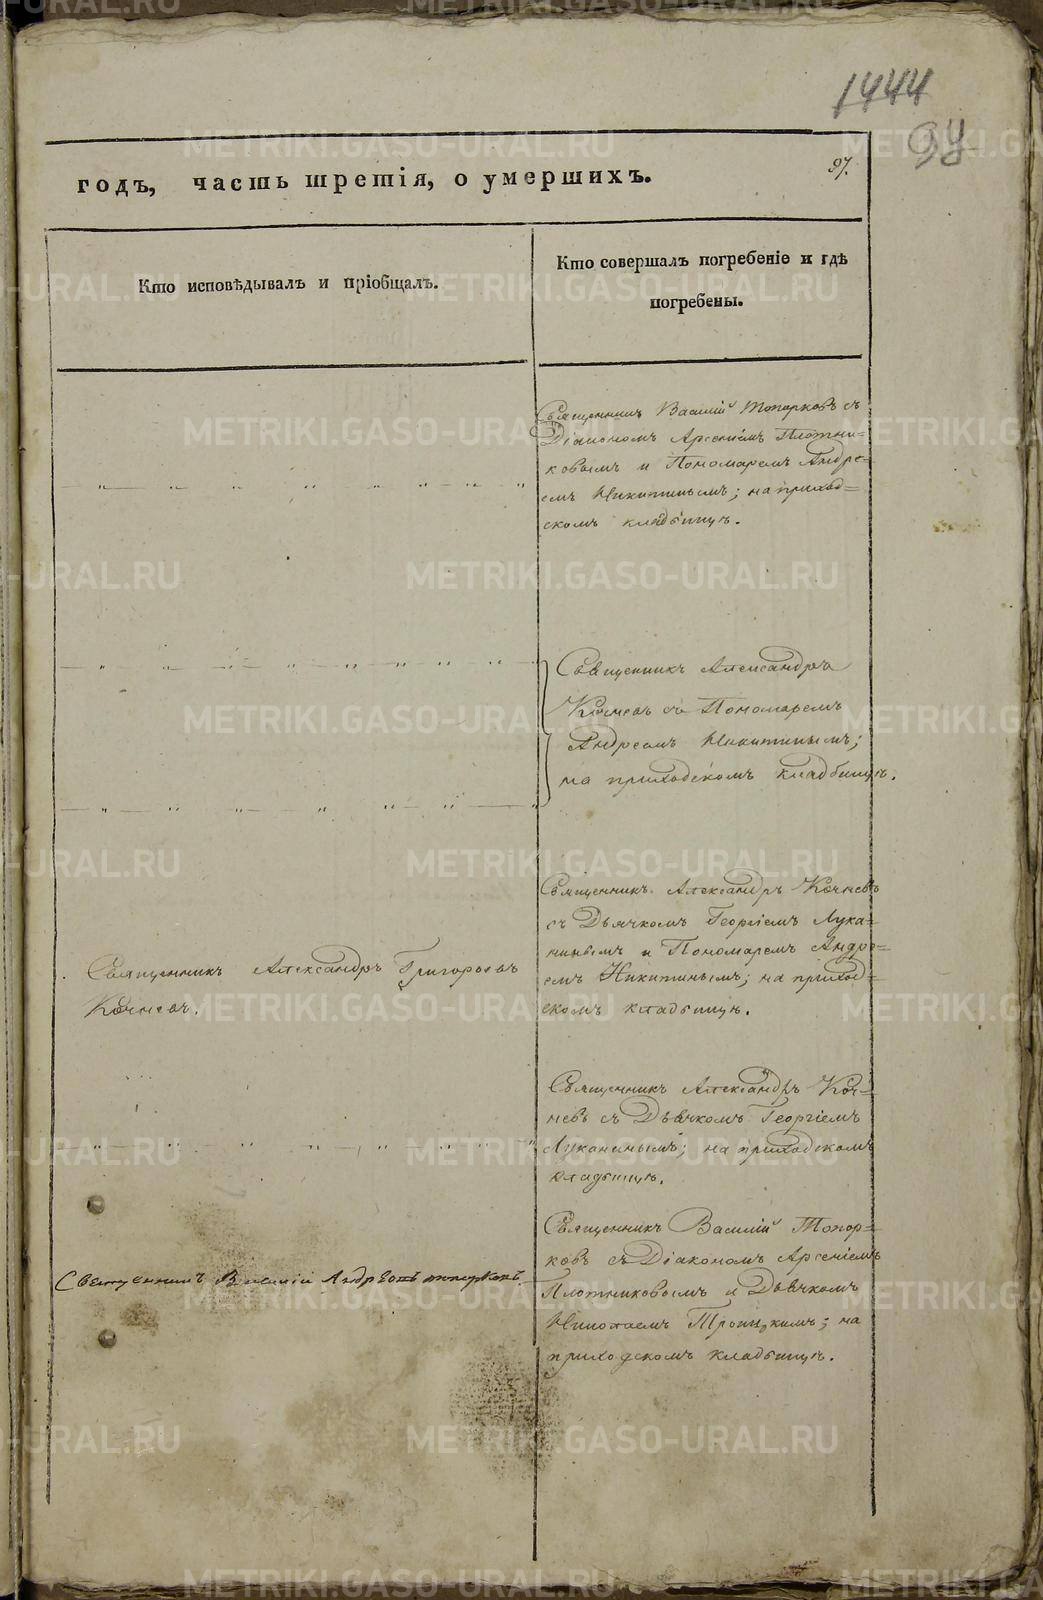 1444
97
97.
годъ, часть третія, о умершихъ.
Кто исповѣдывалъ и пріобщалъ.
Кто совершалъ погребеніе и гдѣ
погребены.
Священникъ Василій Топорковъ съ
Діакономъ Арсеніемъ Плотни=
ковымъ и Пономаремъ Андре=
емъ Никитинымъ; на приход=
скомъ кладбищѣ.
Священникъ Александръ
Кочневъ съ Пономаремъ
Андреемъ Никитинымъ;
на приходскомъ кладбищѣ.
Священникъ Александръ Григорьевъ
Кочневъ.
Священникъ Александръ Кочневъ
съ Дьячкомъ Георгіемъ Лука=
нинымъ и Пономаремъ Андре=
емъ Никитинымъ; на приход=
скомъ кладбищѣ.
Священникъ Александръ Коч=
невъ съ Дьячкомъ Георгіемъ
Луканинымъ; на приходскомъ
кладбищѣ.
Священникъ Василій Андреевъ Топорковъ.
Священникъ Василій Топор=
ковъ съ Діакономъ Арсеніемъ
Плотниковымъ и Дьячкомъ
Николаемъ Троицкимъ; на
приходскомъ кладбищѣ.
METRIKI.GASO-URAL.RU